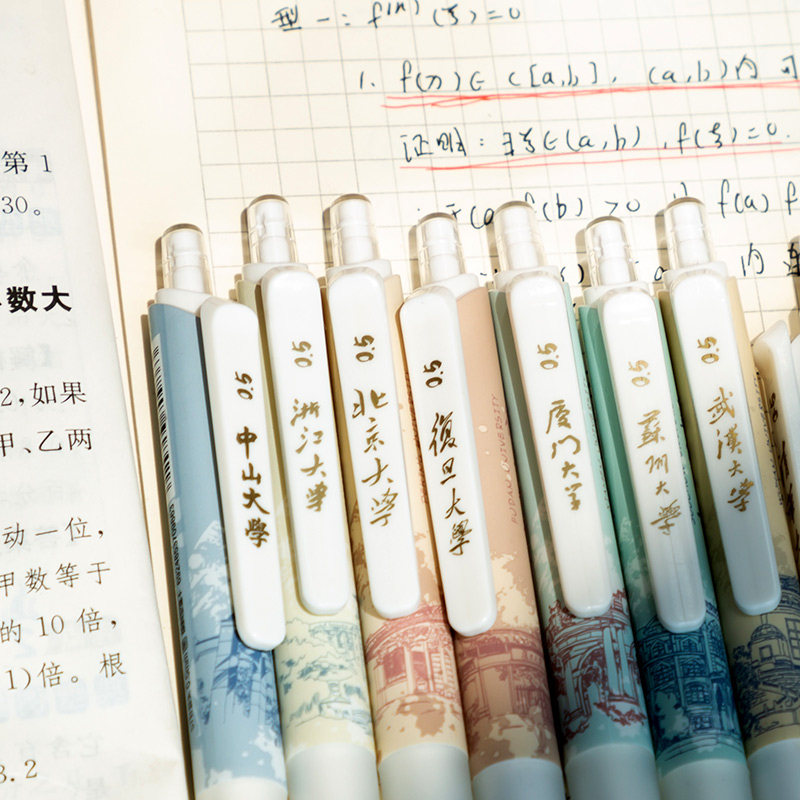 型一：f⁽ⁿ⁾(ξ)=0
1. f(x)∈C[a,b], (a,b)内可
证明：∃ξ∈(a,b), f(ξ)=0.
f(b)>0
f(a) f
内连
第1
30。
数大
2,如果
甲、乙两
动一位,
甲数等于
的10倍,
1)倍。根
3.2
0.5 中山大學
0.5 浙江大学
0.5 北京大学
0.5 復旦大學
0.5 厦门大学
0.5 苏州大学
0.5 武漢大学
FUDAN UNIVERSITY